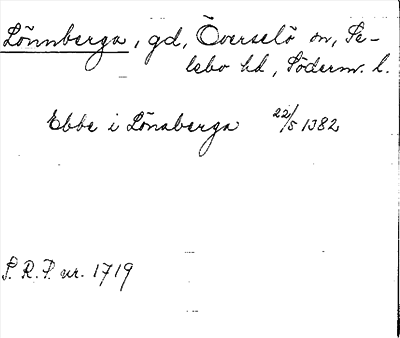 Lönnberga, gd, Överselö sn, Se-
lebo hd, Söderm. l.
Ebbe i Lönaberga 22/5 1382
S.R.P. nr. 1719